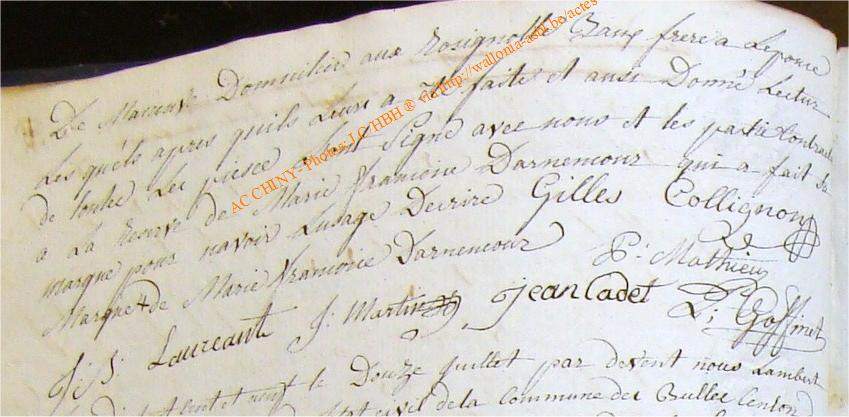 De Manuve Domicilier aux Rosignolle Beaux frere a Lepouce
Les quels apres quils Leur a ete faite et ausi Donné Lectur
de toutte Les piesce ont Signe avec nous et les partie Contractan
a La reserve de Marie francoise Darnemour qui a fait sa
marque pour navoir Lusage Decrire Gilles Collignon
Marque de Marie francoise Darnemour P: Mathieu
J: J: Laureant J: Martin jean Cadet P: Goffinet
neuf le Douze juillet par devent nous Lambert
de la Commune de
AC CHINY - Photos LC/HBH ® via http://wallonia-asbl.be/actes